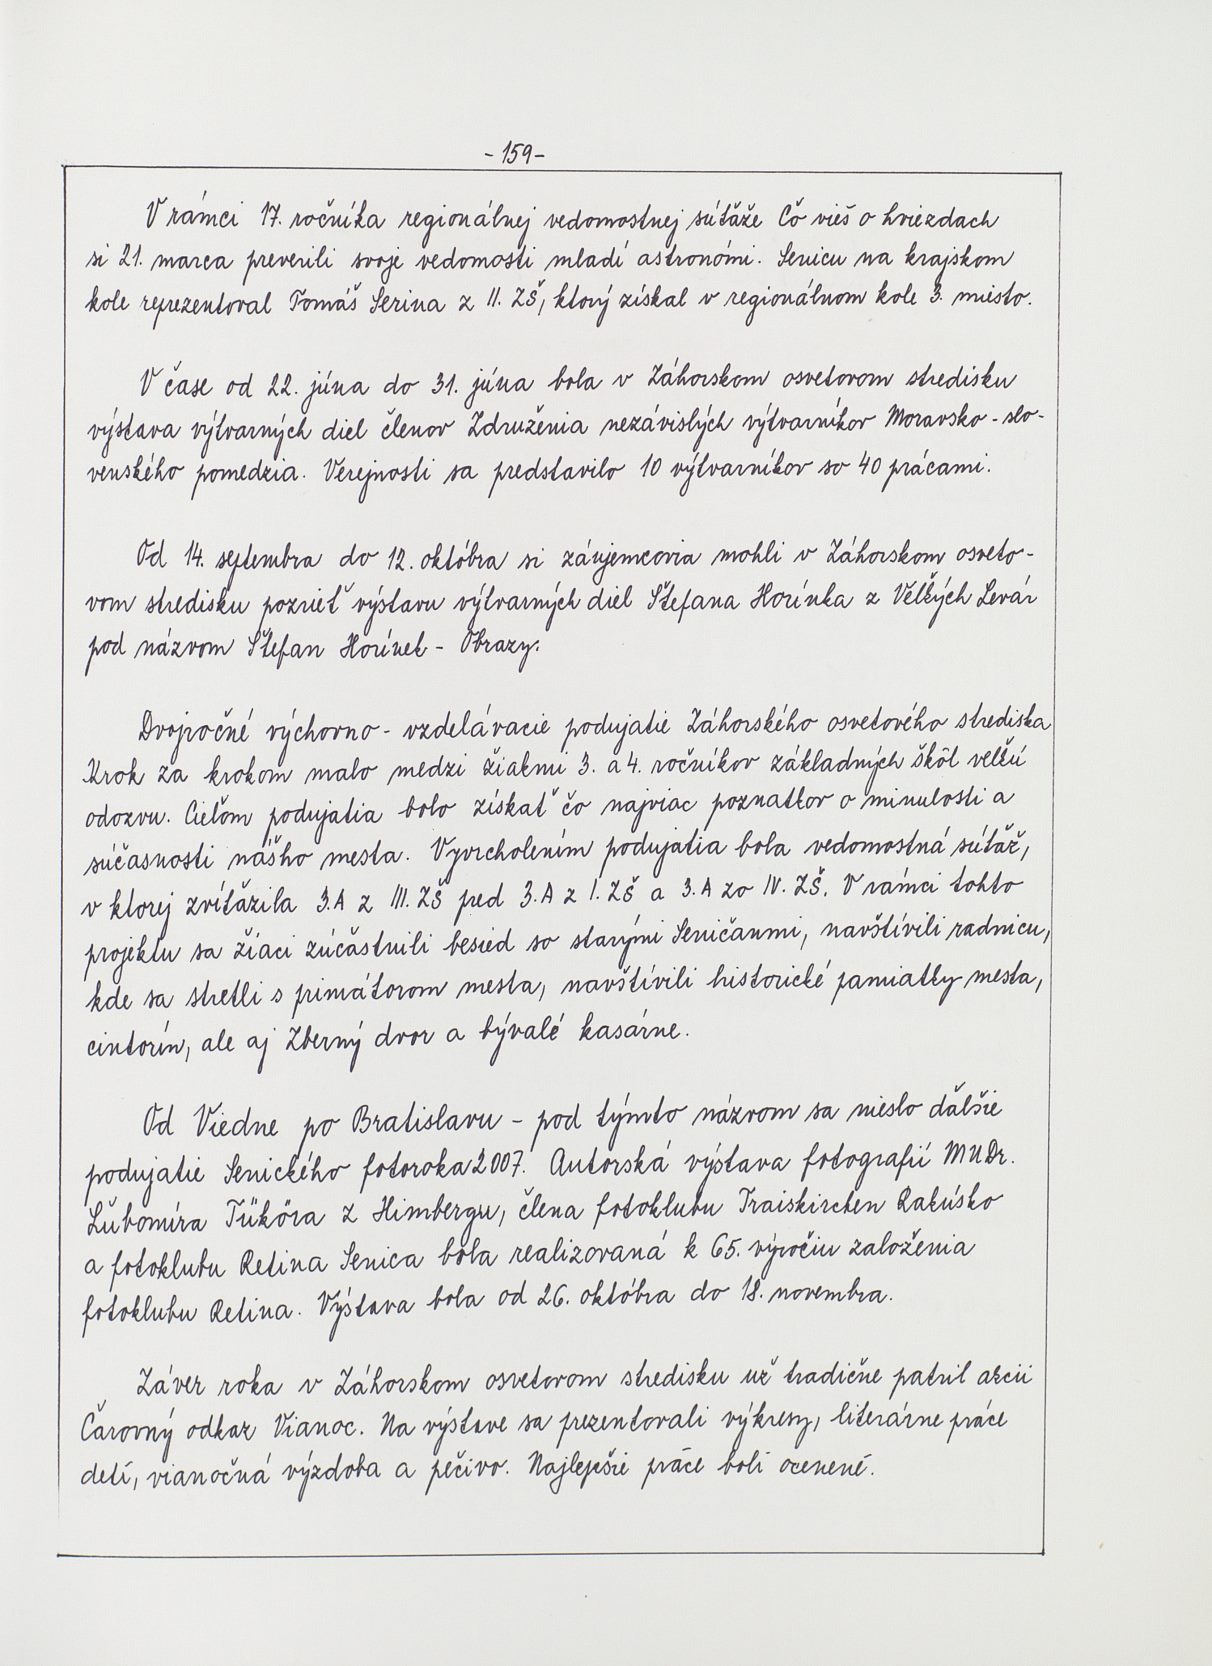 - 159 -
V rámci 17. ročníka regionálnej vedomostnej súťaže Čo vieš o hviezdach
si 21. marca preverili svoje vedomosti mladí astronómi. Senicu na krajskom
kole reprezentoval Tomáš Serina z II. ZŠ, ktorý získal v regionálnom kole 3. miesto.
V čase od 22. júna do 31. júna bola v Záhorskom osvetovom stredisku
výstava výtvarných diel členov Združenia nezávislých výtvarníkov Moravsko - slo-
venského pomedzia. Verejnosti sa predstavilo 10 výtvarníkov so 40 prácami.
Od 14. septembra do 12. októbra si záujemcovia mohli v Záhorskom osveto-
vom stredisku pozrieť výstavu výtvarných diel Štefana Horínka z Veľkých Levár
pod názvom Štefan Horínek - Obrazy.
Dvojročné výchovno - vzdelávacie podujatie Záhorského osvetového strediska
Krok za krokom malo medzi žiakmi 3. a 4. ročníkov základných škôl veľkú
odozvu. Cieľom podujatia bolo získať čo najviac poznatkov o minulosti a
súčasnosti nášho mesta. Vyvrcholením podujatia bola vedomostná súťaž,
v ktorej zvíťazila 3.A z III. ZŠ pred 3.A z I. ZŠ a 3.A zo IV. ZŠ. V rámci tohto
projektu sa žiaci zúčastnili besied so starými Seničanmi, navštívili radnicu,
kde sa stretli s primátorom mesta, navštívili historické pamiatky mesta,
cintorín, ale aj Zberný dvor a bývalé kasárne.
Od Viedne po Bratislavu - pod týmto názvom sa nieslo ďalšie
podujatie Senického fotoroka 2007. Autorská výstava fotografií MUDr.
Ľubomíra Tüköra z Himbergu, člena fotoklubu Traiskirchen Rakúsko
a fotoklubu Retina Senica bola realizovaná k 65. výročiu založenia
fotoklubu Retina. Výstava bola od 26. októbra do 18. novembra.
Záver roka v Záhorskom osvetovom stredisku už tradične patril akcii
Čarovný odkaz Vianoc. Na výstave sa prezentovali výkresy, literárne práce
detí, vianočná výzdoba a pečivo. Najlepšie práce boli ocenené.